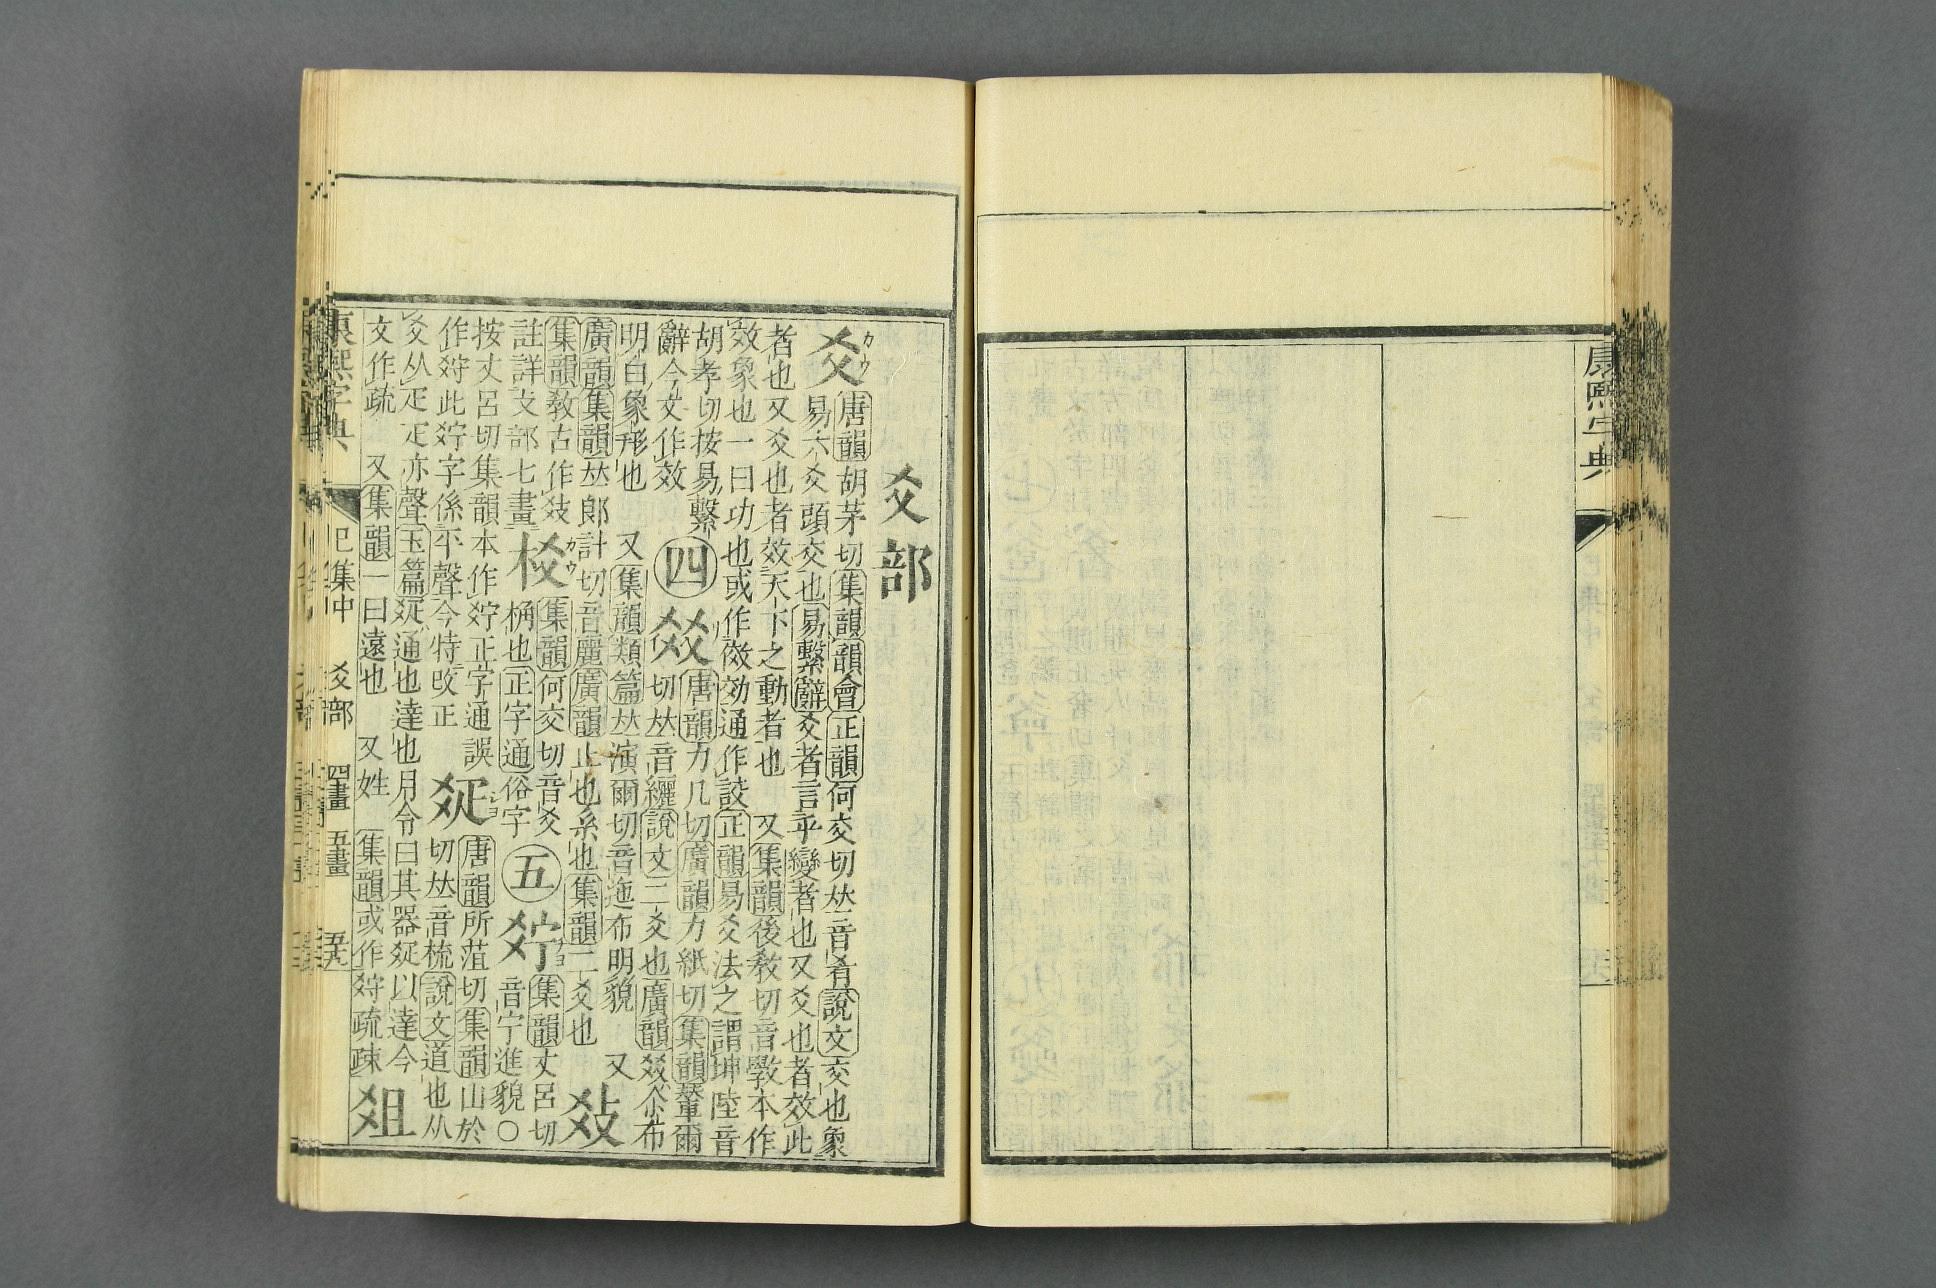 康熙字典
爻部
爻 カウ
唐韻胡茅切集韻韻會正韻何交切𠀤音肴說文交也象
易六爻頭交也易繫辭爻者言乎變者也又爻也者效此
者也又爻也者效天下之動者也 又集韻後敎切音斆本作
效象也一曰功也或作傚効通作詨正韻易爻法之謂坤陸音
胡孝切按易繫
辭今文作效
四
㸚
唐韻力几切廣韻力紙切集韻輦爾
切𠀤音纚說文二爻也廣韻㸚尒布
明白象形也 又集韻類篇𠀤演爾切音迤布明貌 又
廣韻集韻𠀤郎計切音麗廣韻止也系也集韻二爻也
集韻敎古作
註詳攴部七畫
カウ
集韻何交切音爻
桷也正字通俗字
五
チヨ
集韻丈呂切
音宁進貌○
按丈呂切集韻本作 正字通誤
作 此 字係平聲今特改正
𤕟 シヨ
唐韻所菹切集韻山於
切𠀤音梳說文道也从
爻从疋疋亦聲玉篇𤕟通也達也月令曰其器𤕟以達今
文作疏 又集韻一曰遠也 又姓 集韻或作 疏疎
爼
康熙字典 巳集中 爻部 四畫 五畫 五九